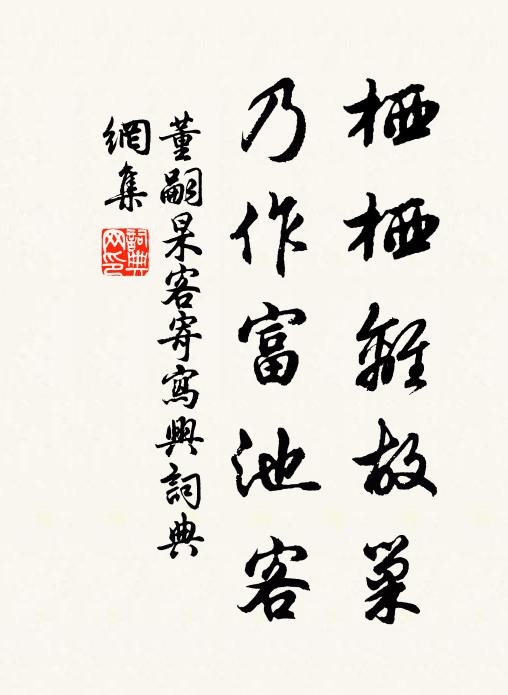 栖栖離故巢
乃作富池客
董嗣杲客寄寫興詞典
網集
詞典網印